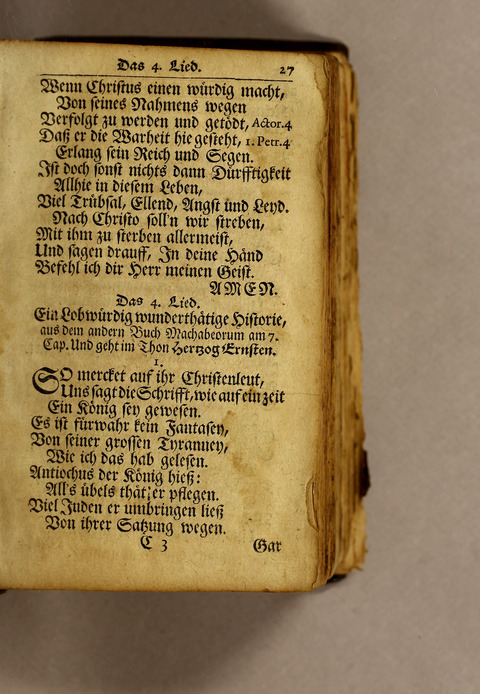 Das 4. Lied. 27
Wenn Christus einen würdig macht,
Von seines Nahmens wegen
Verfolgt zu werden und getödt, Actor.4
Daß er die Warheit hie gesteht, 1. Petr.4
Erlang sein Reich und Segen.
Ist doch sonst nichts dann Dürfftigkeit
Allhie in diesem Leben,
Viel Trübsal, Ellend, Angst und Leyd.
Nach Christo soll'n wir streben,
Mit ihm zu sterben allermeist,
Und sagen drauff, In deine Händ
Befehl ich dir Herr meinen Geist.
AMEN.
Das 4. Lied.
Ein Lobwürdig wunderthätige Historie,
aus dem andern Buch Machabeorum am 7.
Cap. Und geht im Thon Hertzog Ernsten.
1.
SO mercket auf ihr Christenleut,
Uns sagt die Schrifft, wie auf ein zeit
Ein König sey gewesen.
Es ist fürwahr kein Fantasey,
Von seiner grossen Tyranney,
Wie ich das hab gelesen.
Antiochus der König hieß:
All's übels thät er pflegen.
Viel Juden er umbringen ließ
Von ihrer Satzung wegen.
C 3 Gar